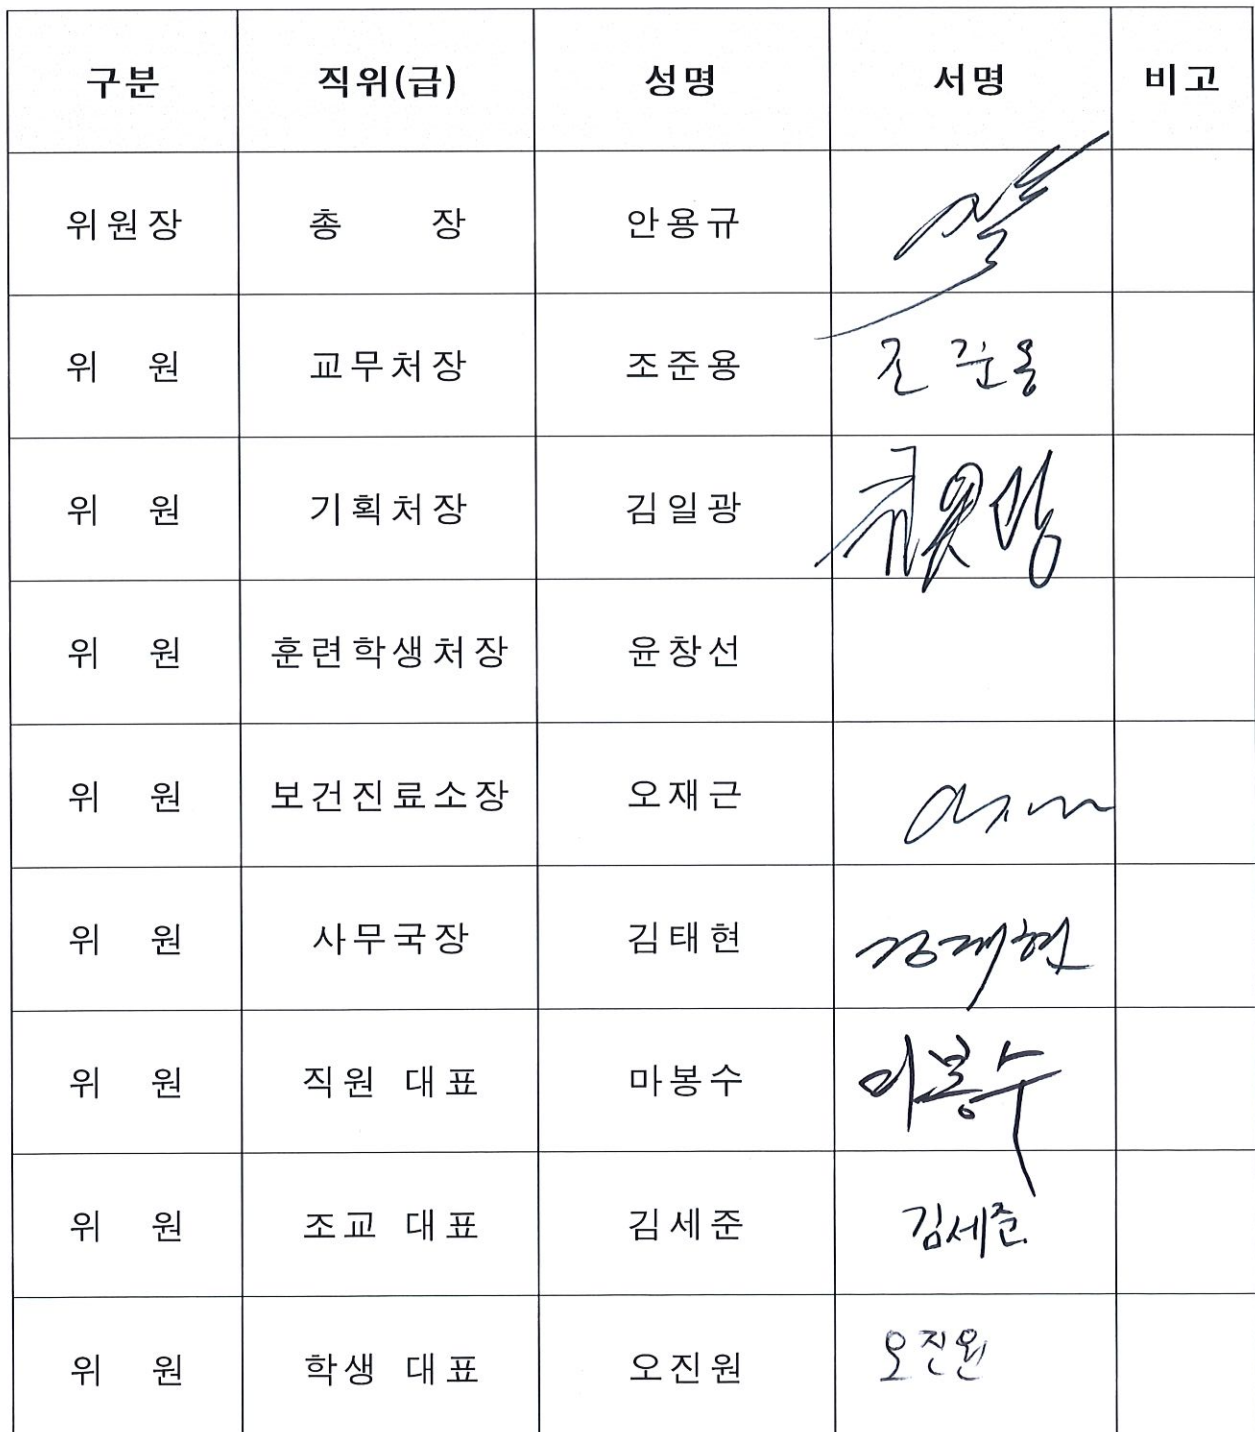 구분 직위(급) 성명 서명 비고
위원장 총 장 안용규
위 원 교무처장 조준용 조준용
위 원 기획처장 김일광
위 원 훈련학생처장 윤창선
위 원 보건진료소장 오재근
위 원 사무국장 김태현 김태현
위 원 직원 대표 마봉수 마봉수
위 원 조교 대표 김세준 김세준
위 원 학생 대표 오진원 오진원